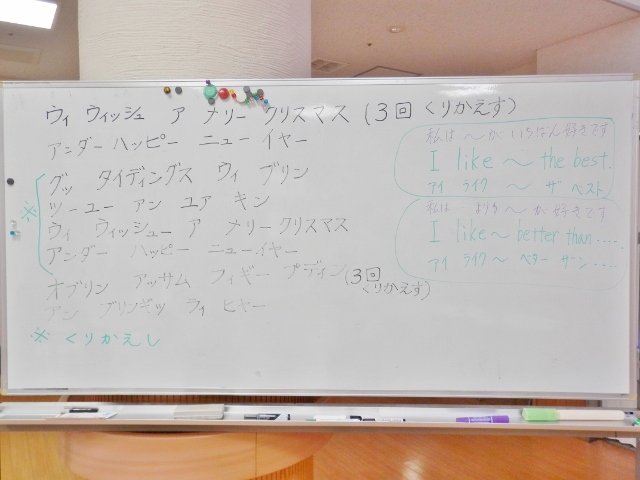 ウィ ウィッシュ ア メリー クリスマス (3回 くりかえす)
アンダー ハッピー ニュー イヤー
※ グッ タイディングス ウィ ブリン
ツーユー アン ユア キン
ウィ ウィッシュー ア メリークリスマス
アンダー ハッピー ニューイヤー
オブリン アッサム フィギー プディン (3回 くりかえす)
アン ブリンギッ ライ ヒヤー
※ くりかえし
私は ～が いちばん 好きです
I like ～ the best.
アイ ライク ～ ザ ベスト
私は より ～ が 好きです
I like ～ better than.....
アイ ライク ～ ベター ザン.....